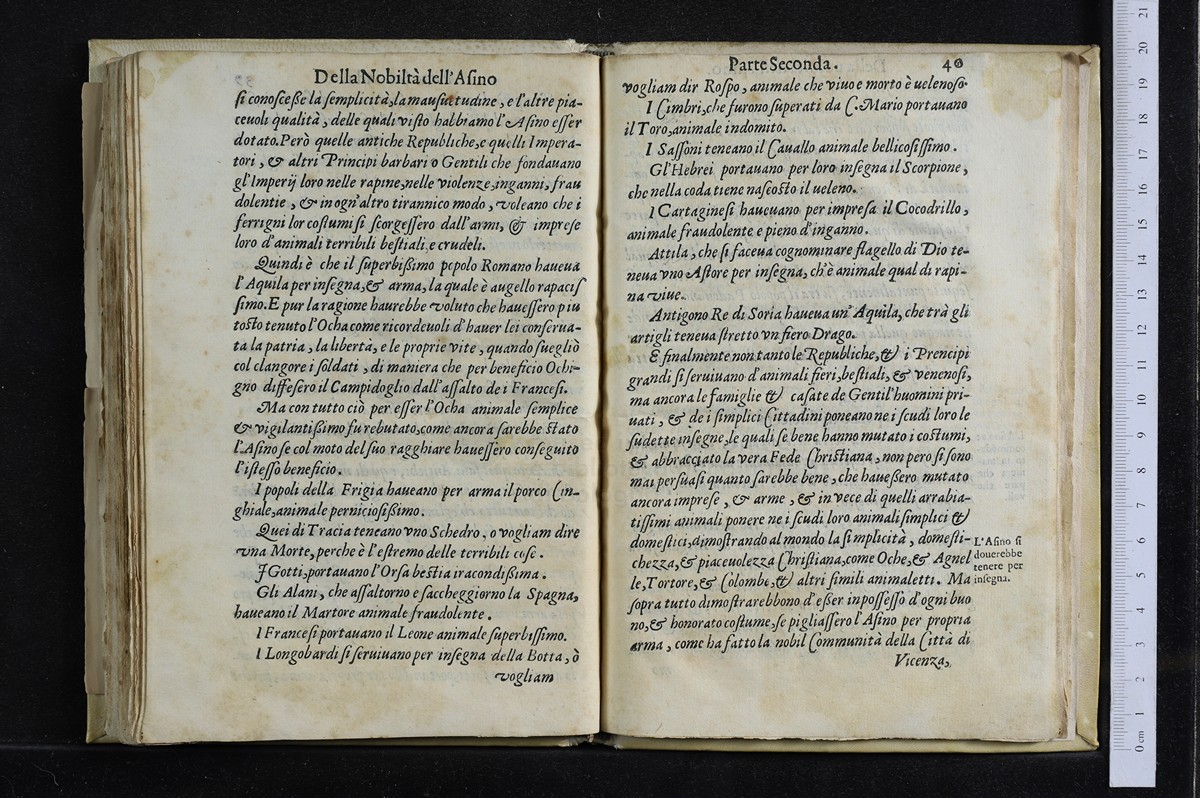 Della Nobiltà dell'Asino
si conoscesse la semplicità, la mansuetudine, e l'altre pia-
ceuoli qualità, delle quali visto habbiamo l'Asino esser
dotato. Però quelle antiche Republiche, e quelli Impera-
tori, & altri Principi barbari o Gentili che fondauano
gl'Imperij loro nelle rapine, nelle violenze, inganni, frau
dolentie, & in ogn'altro tirannico modo, voleano che i
ferrigni lor costumi si scorgessero dall'armi, & imprese
loro d'animali terribili bestiali, e crudeli.
Quindi è che il superbissimo popolo Romano haueua
l'Aquila per insegna, & arma, la quale è augello rapacis
simo. E pur la ragione haurebbe voluto che hauessero piu
tosto tenuto l'Ocha come ricordeuoli d'hauer lei conserua-
ta la patria, la libertà, e le proprie vite, quando suegliò
col clangore i soldati, di maniera che per beneficio Ochi-
gno diffesero il Campidoglio dall'assalto de i Francesi.
Ma con tutto ciò per esser l'Ocha animale semplice
& vigilantissimo fu rebutato, come ancora sarebbe stato
l'Asino se col moto del suo ragghiare hauessero conseguito
l'istesso beneficio.
I popoli della Frigia haueano per arma il porco Cin-
ghiale, animale perniciosissimo.
Quei di Tracia teneano vno Schedro, o vogliam dire
vna Morte, perche è l'estremo delle terribili cose.
I Gotti, portauano l'Orsa bestia iracondissima.
Gli Alani, che assaltorno e saccheggiorno la Spagna,
haueano il Martore animale fraudolente.
I Francesi portauano il Leone animale superbissimo.
I Longobardi si seruiuano per insegna della Botta, ò
vogliam
Parte Seconda. 40
vogliam dir Rospo, animale che viuo e morto è uelenoso.
I Cimbri, che furono superati da C. Mario portauano
il Toro, animale indomito.
I Sassoni teneano il Cauallo animale bellicosissimo.
Gl'Hebrei portauano per loro insegna il Scorpione,
che nella coda tiene nascosto il ueleno.
I Cartaginesi haueuano per impresa il Cocodrillo,
animale fraudolente e pieno d'inganno.
Attila, che si faceua cognominare flagello di Dio te-
neua vno Astore per insegna, ch'è animale qual di rapi-
na viue.
Antigono Re di Soria haueua un' Aquila, che trà gli
artigli teneua stretto vn fiero Drago.
E finalmente non tanto le Republiche, & i Prencipi
grandi si seruiuano d'animali fieri, bestiali, & venenosi,
ma ancora le famiglie & casate de Gentil'huomini pri-
uati, & de i simplici Cittadini poneano ne i scudi loro le
sudette insegne, le quali se bene hanno mutato i costumi,
& abbracciato la vera Fede Christiana, non pero si sono
mai persuasi quanto sarebbe bene, che hauessero mutato
ancora imprese, & arme, & in vece di quelli arrabia-
tissimi animali ponere ne i scudi loro animali simplici &
domestici, dimostrando al mondo la simplicità, domesti-
chezza, & piaceuolezza Christiana, come Oche, & Agnel
le, Tortore, & Colombe, & altri simili animaletti. Ma
sopra tutto dimostrarebbono d'esser in possesso d'ogni buo
no, & honorato costume, se pigliassero l'Asino per propria
arma, come ha fatto la nobil Communità della Città di
Vicenza,
L'Asino si
douerebbe
tenere per
insegna.
0 cm 1 2 3 4 5 6 7 8 9 10 11 12 13 14 15 16 17 18 19 20 21